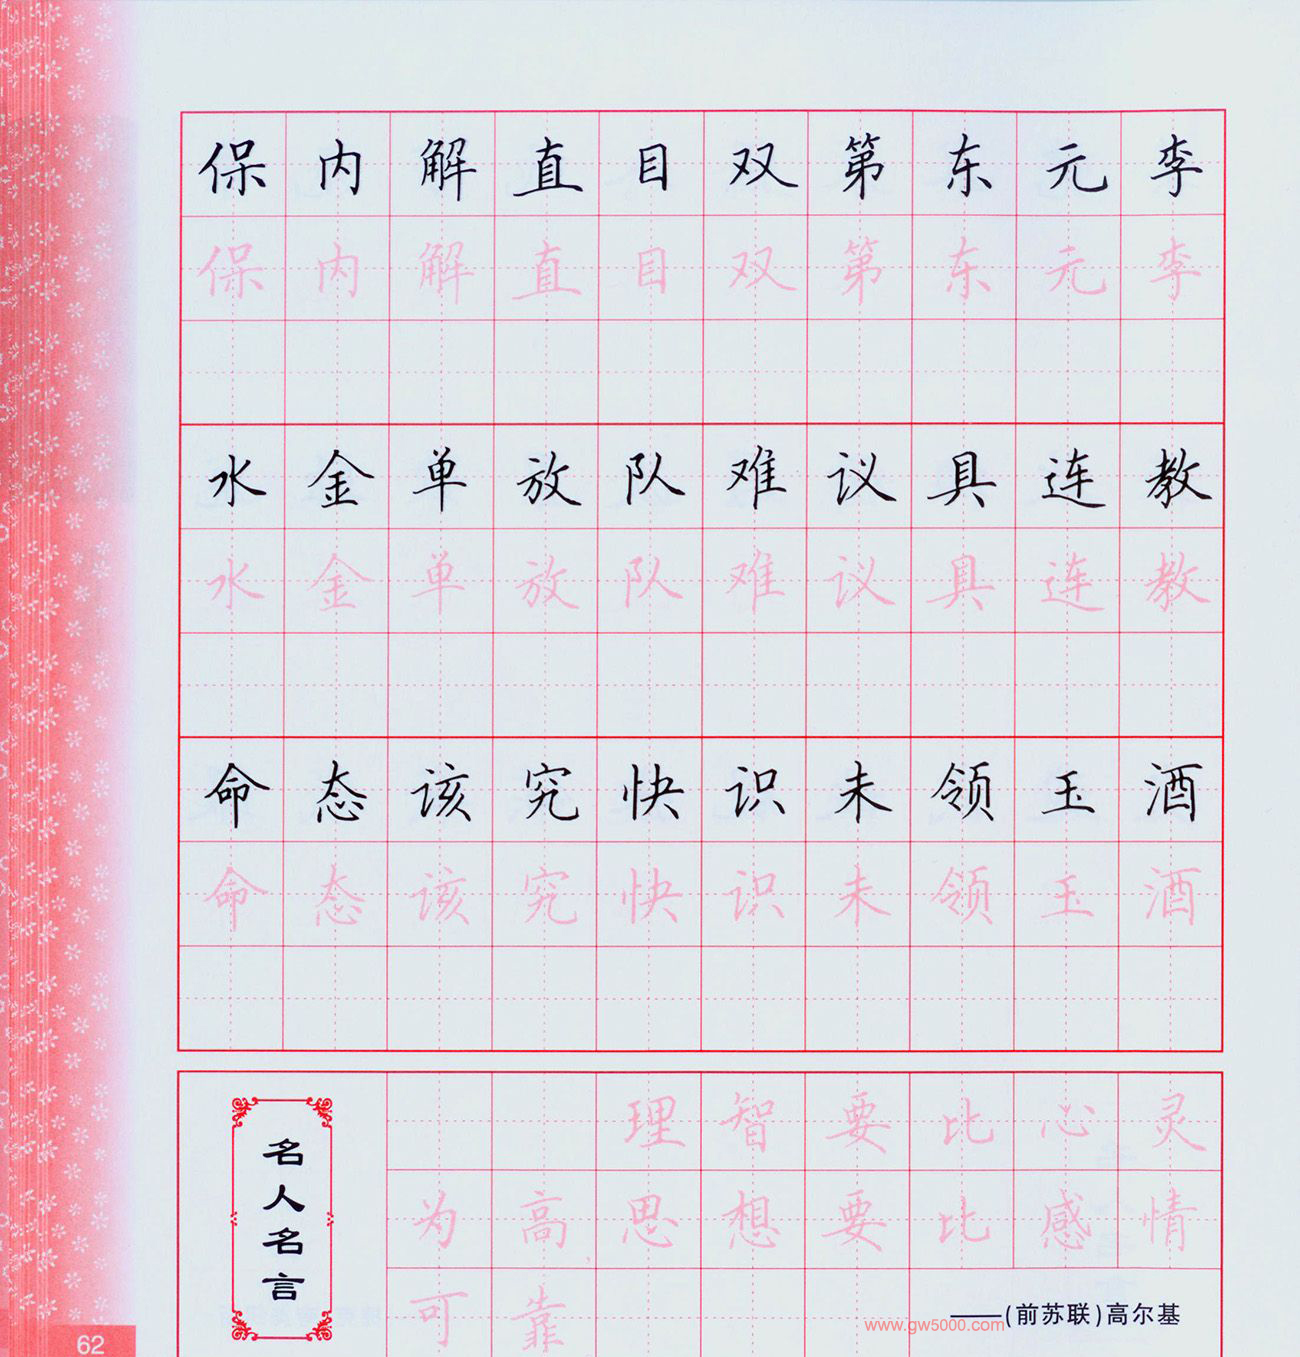 保内解直目双第东元李
保内解直目双第东元李
水金单放队难议具连教
水金单放队难议具连教
命态该究快识未领玉酒
命态该究快识未领玉酒
名人名言
理智要比心灵
为高思想要比感情
可靠
——(前苏联)高尔基
www.gw5000.com
62